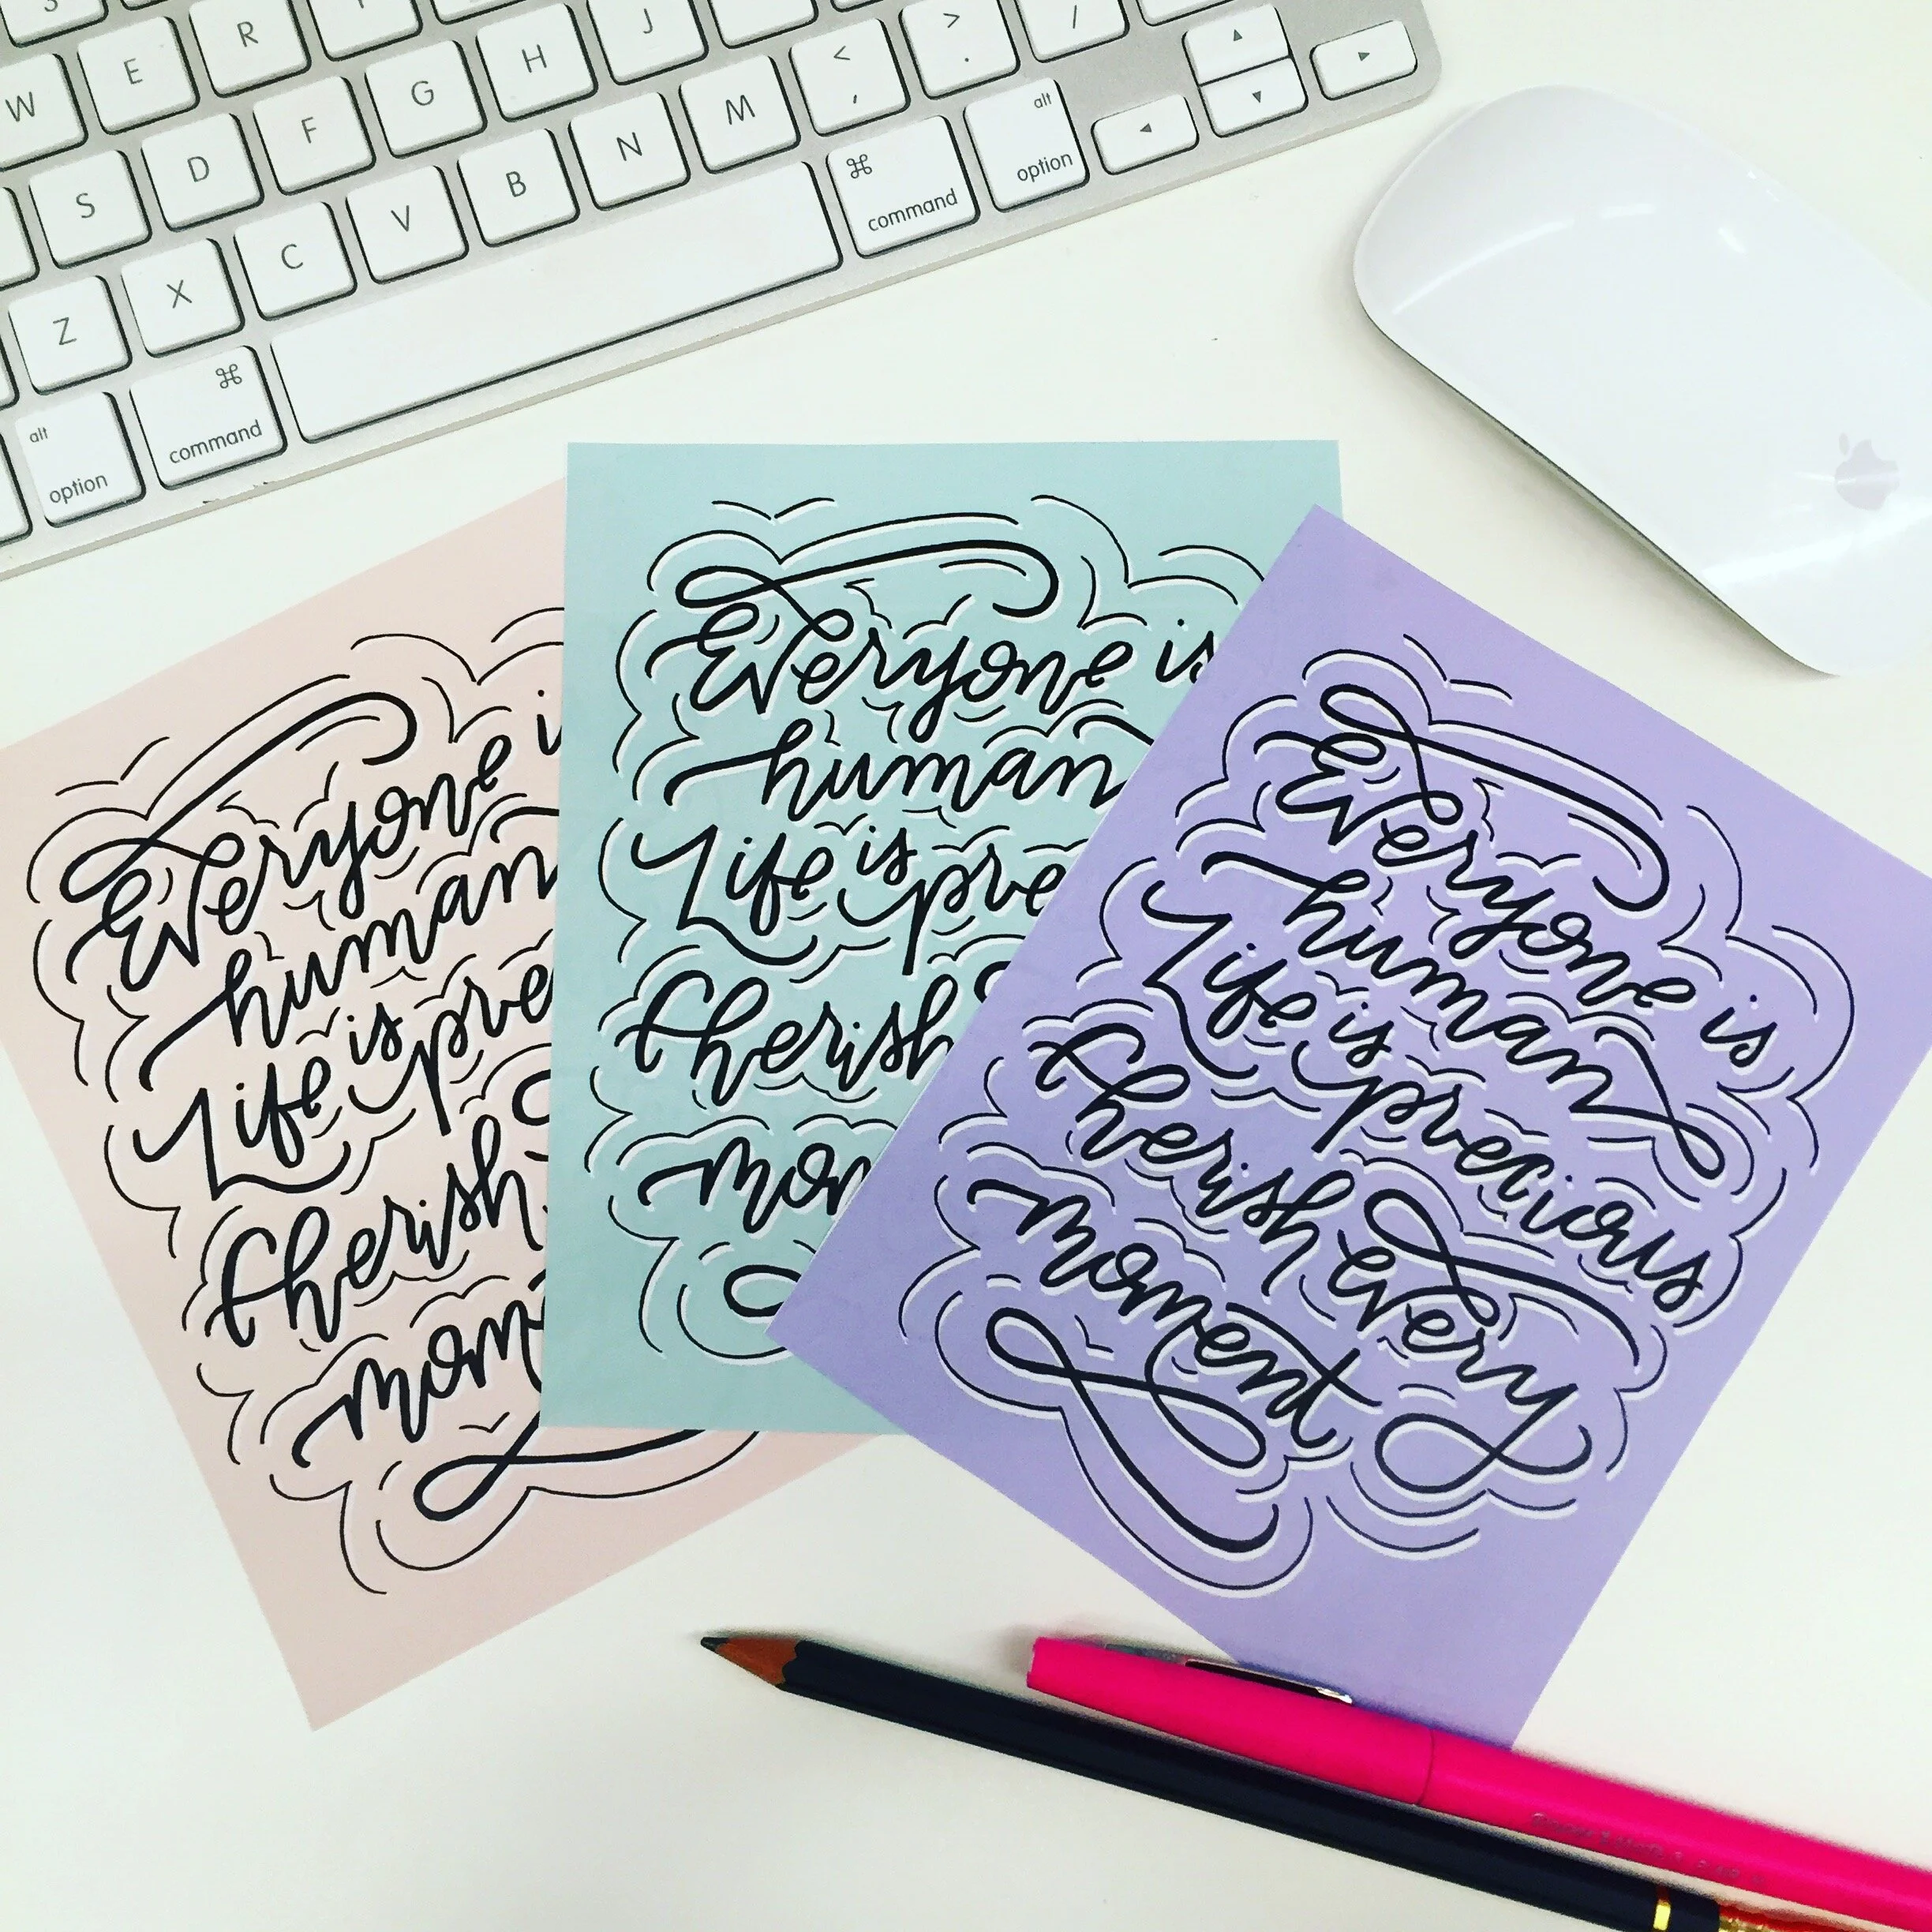 W E R
S D F G H J
Z X C V B N M < , > . /
alt option
command
command
alt option
Everyone is
human
Life is pre
Cherish
mom
Everyone is
human
Life is pre
Cherish
mom
Everyone is
human
Life is precious
Cherish every
moment